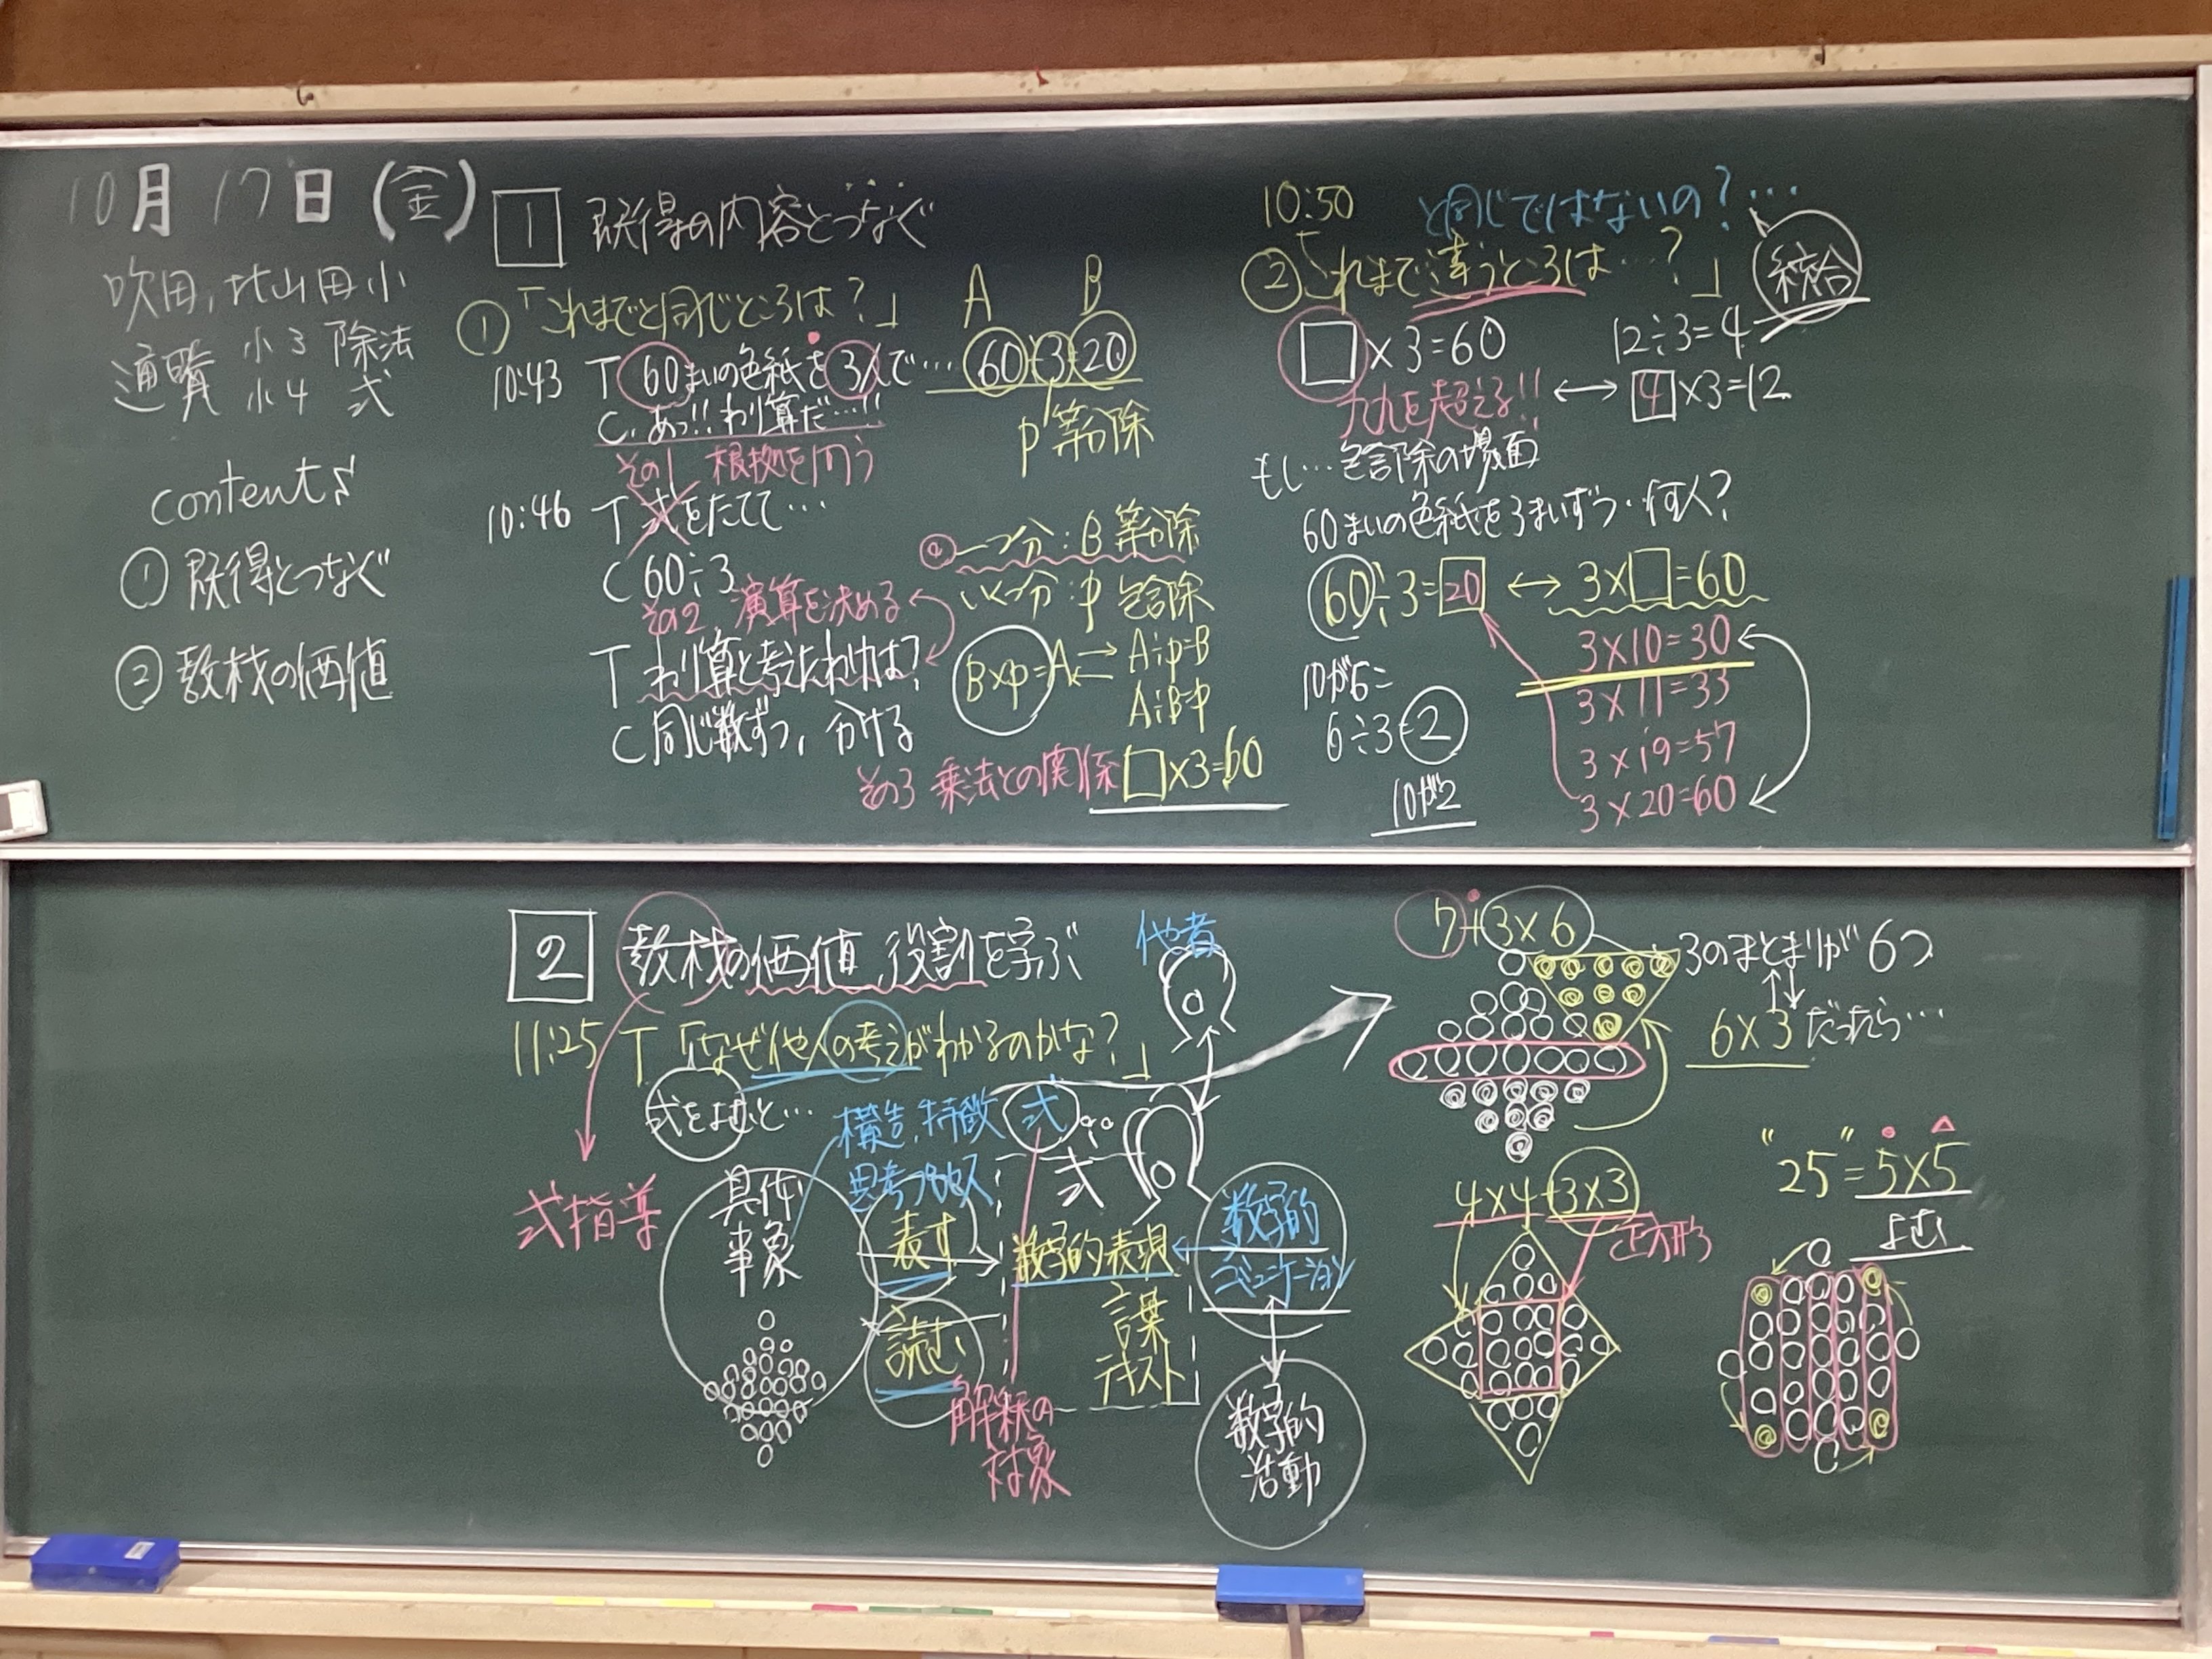 10月17日(金)
吹田,北山田小
小3 除法
小4 式
contents
① 既得とつなぐ
② 教材の価値
1 既得の内容とつなぐ
①「これまでと同じところは?」
10:43 T 60まいの色紙を3人で…
C.あっ!!わり算だ…!!
その1 根拠を問う
10:46 T 式をたてて…
C 60÷3
その2 演算を決める
T わり算と考えたわけは?
C 同じ数ずつ,分ける
その3 乗法との関係 □×3=60
A B
60÷3=20
P 等分除
一つ分:B 等分除
いくつ分:P 包含除
B×P=A
A÷P=B
A÷B=P
10:50
と同じではないの?…
②「これまで違うところは…?」
統合
□×3=60
九九を超える!!
12÷3=4
4×3=12
もし…包含除の場面
60まいの色紙を3まいずつ・何人?
60÷3=20 ↔ 3×□=60
3×10=30
3×11=33
3×19=57
3×20=60
10が6こ
6÷3=2
10が2
2 教材の価値,役割を学ぶ
11:25 T「なぜ他人の考えがわかるのかな?」
式をよむと…
式指導
構造,特徴
式
式
他者
具体
事象
表す
読む
数学的表現
言葉
テキスト
解釈の
対象
数学的
コミュニケーション
数学的
活動
7+3×6
3のまとまりが6つ
6×3だったら…
4×4+3×3
正方形
"25"=5×5
よむ